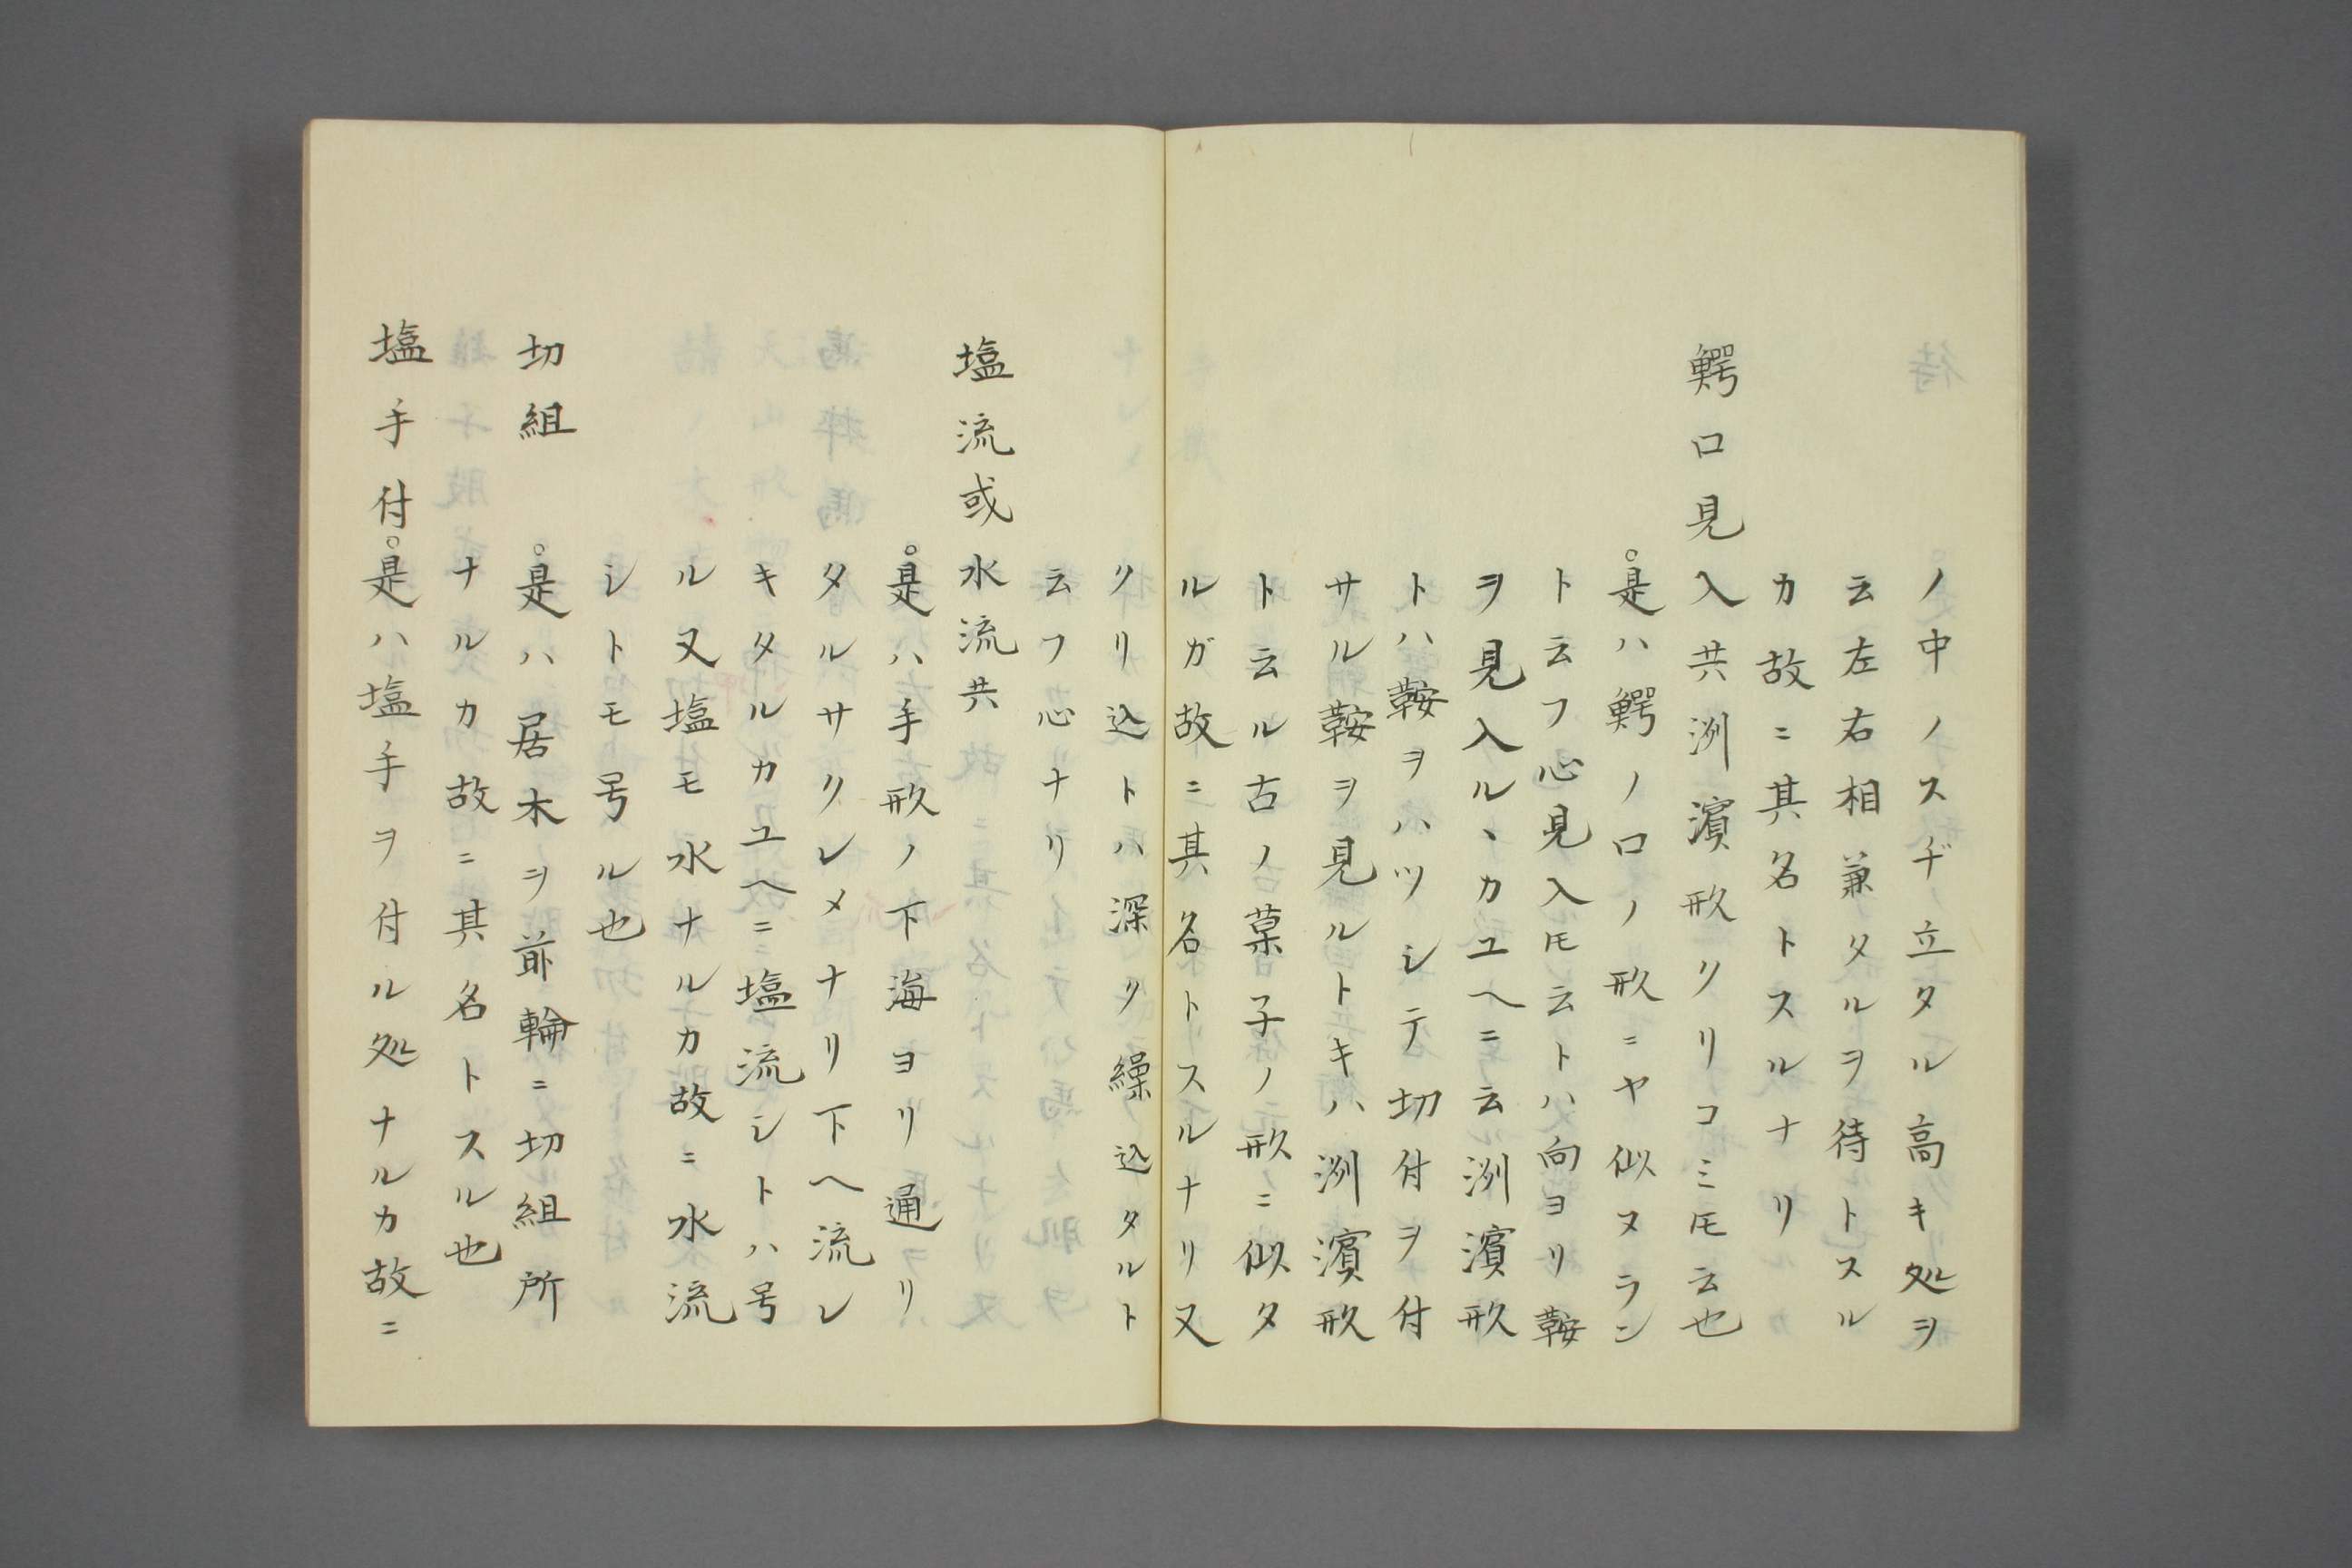 ノ中ノスヂノ立タル高キ処ヲ
云左右相兼タルヲ待トスル
カ故ニ其名トスルナリ
鰐口見入共洲濱形クリコミ𪜈云也
是ハ鰐ノ口ノ形ニヤ似ヌラン
ト云フ心見入𪜈云トハ向ヨリ鞍
ヲ見入ルヽカユヘニ云洲濱形
トハ鞍ヲハツシテ切付ヲ付
サル鞍ヲ見ルトキハ洲濱形
ト云ル古ノ菓子ノ形ニ似タ
ルガ故ニ其名トスルナリ又
クリ込トハ深ク繰込タルト
云フ心ナリ
塩流或水流共
是ハ手形ノ下海ヨリ通リ
タルサクレメナリ下ヘ流レ
キタルカユヘニ塩流シトハ号
ル又塩モ水ナルカ故ニ水流
シトモ号ル也
切組
是ハ居木ヲ前輪ニ切組所
ナルカ故ニ其名トスル也
塩手付是ハ塩手ヲ付ル処ナルカ故ニ